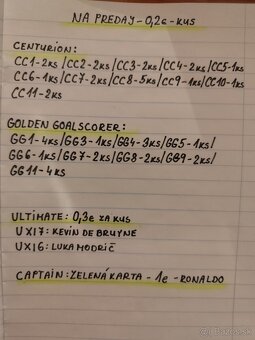 NA PREDAJ-0,2€-KUS
CENTURION:
CC1-2KS/CC2-2KS/CC3-2KS/CC4-2KS/CC5-1KS
CC6-1KS/CC7-2KS/CC8-5KS/CC9-1KS/CC10-1KS
CC11-2KS
GOLDEN GOALSCORER:
GG1-4KS/GG3-1KS/GG4-3KS/GG5-1KS/
GG6-1KS/GG7-2KS/GG8-2KS/GG9-2KS/
GG11-4KS
ULTIMATE: 0,3€ ZA KUS
UX17: KEVIN DE BRUYNE
UX16: LUKA MODRIČ
CAPTAIN: ZELENÁ KARTA - 1€ - RONALDO